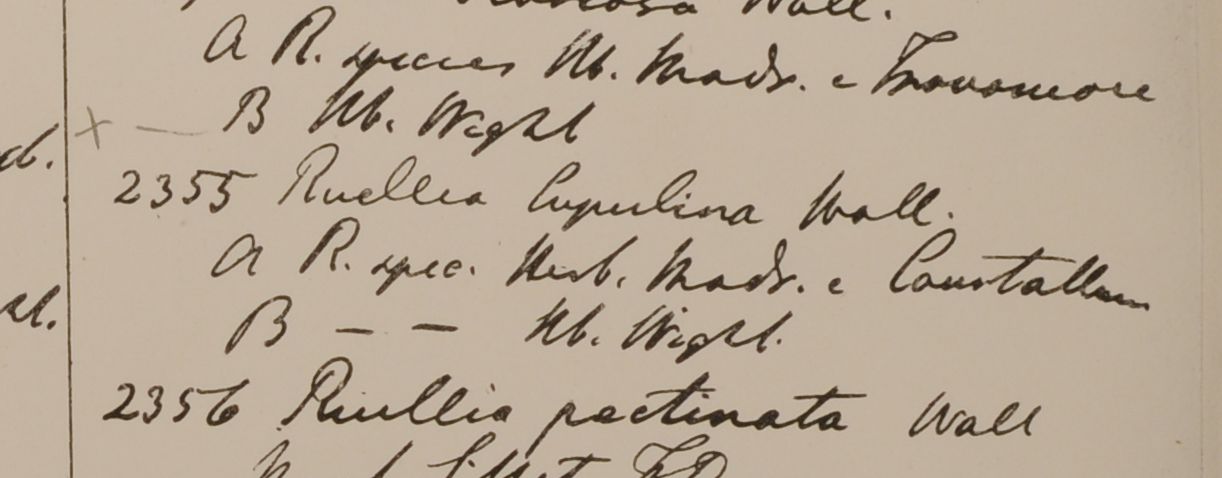 Wall.
A R. species Hb. Madr. e Travancore
B Hb. Wight
2355 Ruellia Cupulina Wall.
A R. spec. Herb. Madr. e Courtallum
B — — Hb. Wight.
2356 Ruellia pectinata Wall